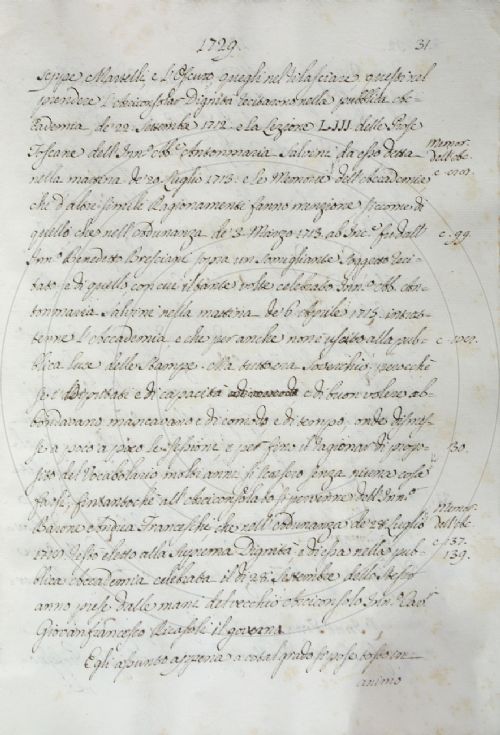 1729.
31.
seppe Martelli, e l'Oscuro quegli nel lasciare questi nel
prendere l'Arciconsolar Dignità recitarono nella pubblica Ac-
cademia de' 22 Settembre 1712 e la Lezione LIII delle Prose
Toscane dell'Inn.º Ab.e Antonmaria Salvini da esso detta
nella mattina de' 20 Luglio 1713. e le Memorie dell'Accademia
Memor.
dell'Ac.
che d'altri simili Ragionamenti fanno menzione siccome di
quello che nell'adunanza de' 3 Marzo 1713 ab Inc. fe dall'
c. 99.
Inn.º Benedetto Bresciani sopra un somigliante soggetto reci-
tato, e di quello con cui il tante volte celebrato Inn.º Ab. An-
tonmaria Salvini nella mattina de' 6 Aprile 1715 intrat-
tenne l'Accademia e che per anche non è uscito alla pub-
blica luce delle Stampe. Ma tuttavia perocchè
se i Deputati e di capacità e di buon volere ab-
bondavano mancavano di comodo e di tempo, onde dismes-
se a poco a poco le sessioni, e per fino il ragionar di propo-
130.
sito del Vocabolario molti anni si stettero senza niuna cosa
farsi, fintantochè all'Arciconsolato pervenne dell'Inn.º
Barone Andrea Franceschi, che nell'adunanza de' 28 Luglio
Memor.
dell'Ac.
c. 137.
139.
eletto alla Suprema Dignità e di essa nella pub-
blica Accademia celebrata il dì 28 Settembre dello stesso
anno prese dalle mani del vecchio Arciconsolo Inn.º Cav.
Giovanfrancesco Ricasoli il governo.
Egli appunto appena a cotal grado si pose tosto in
animo